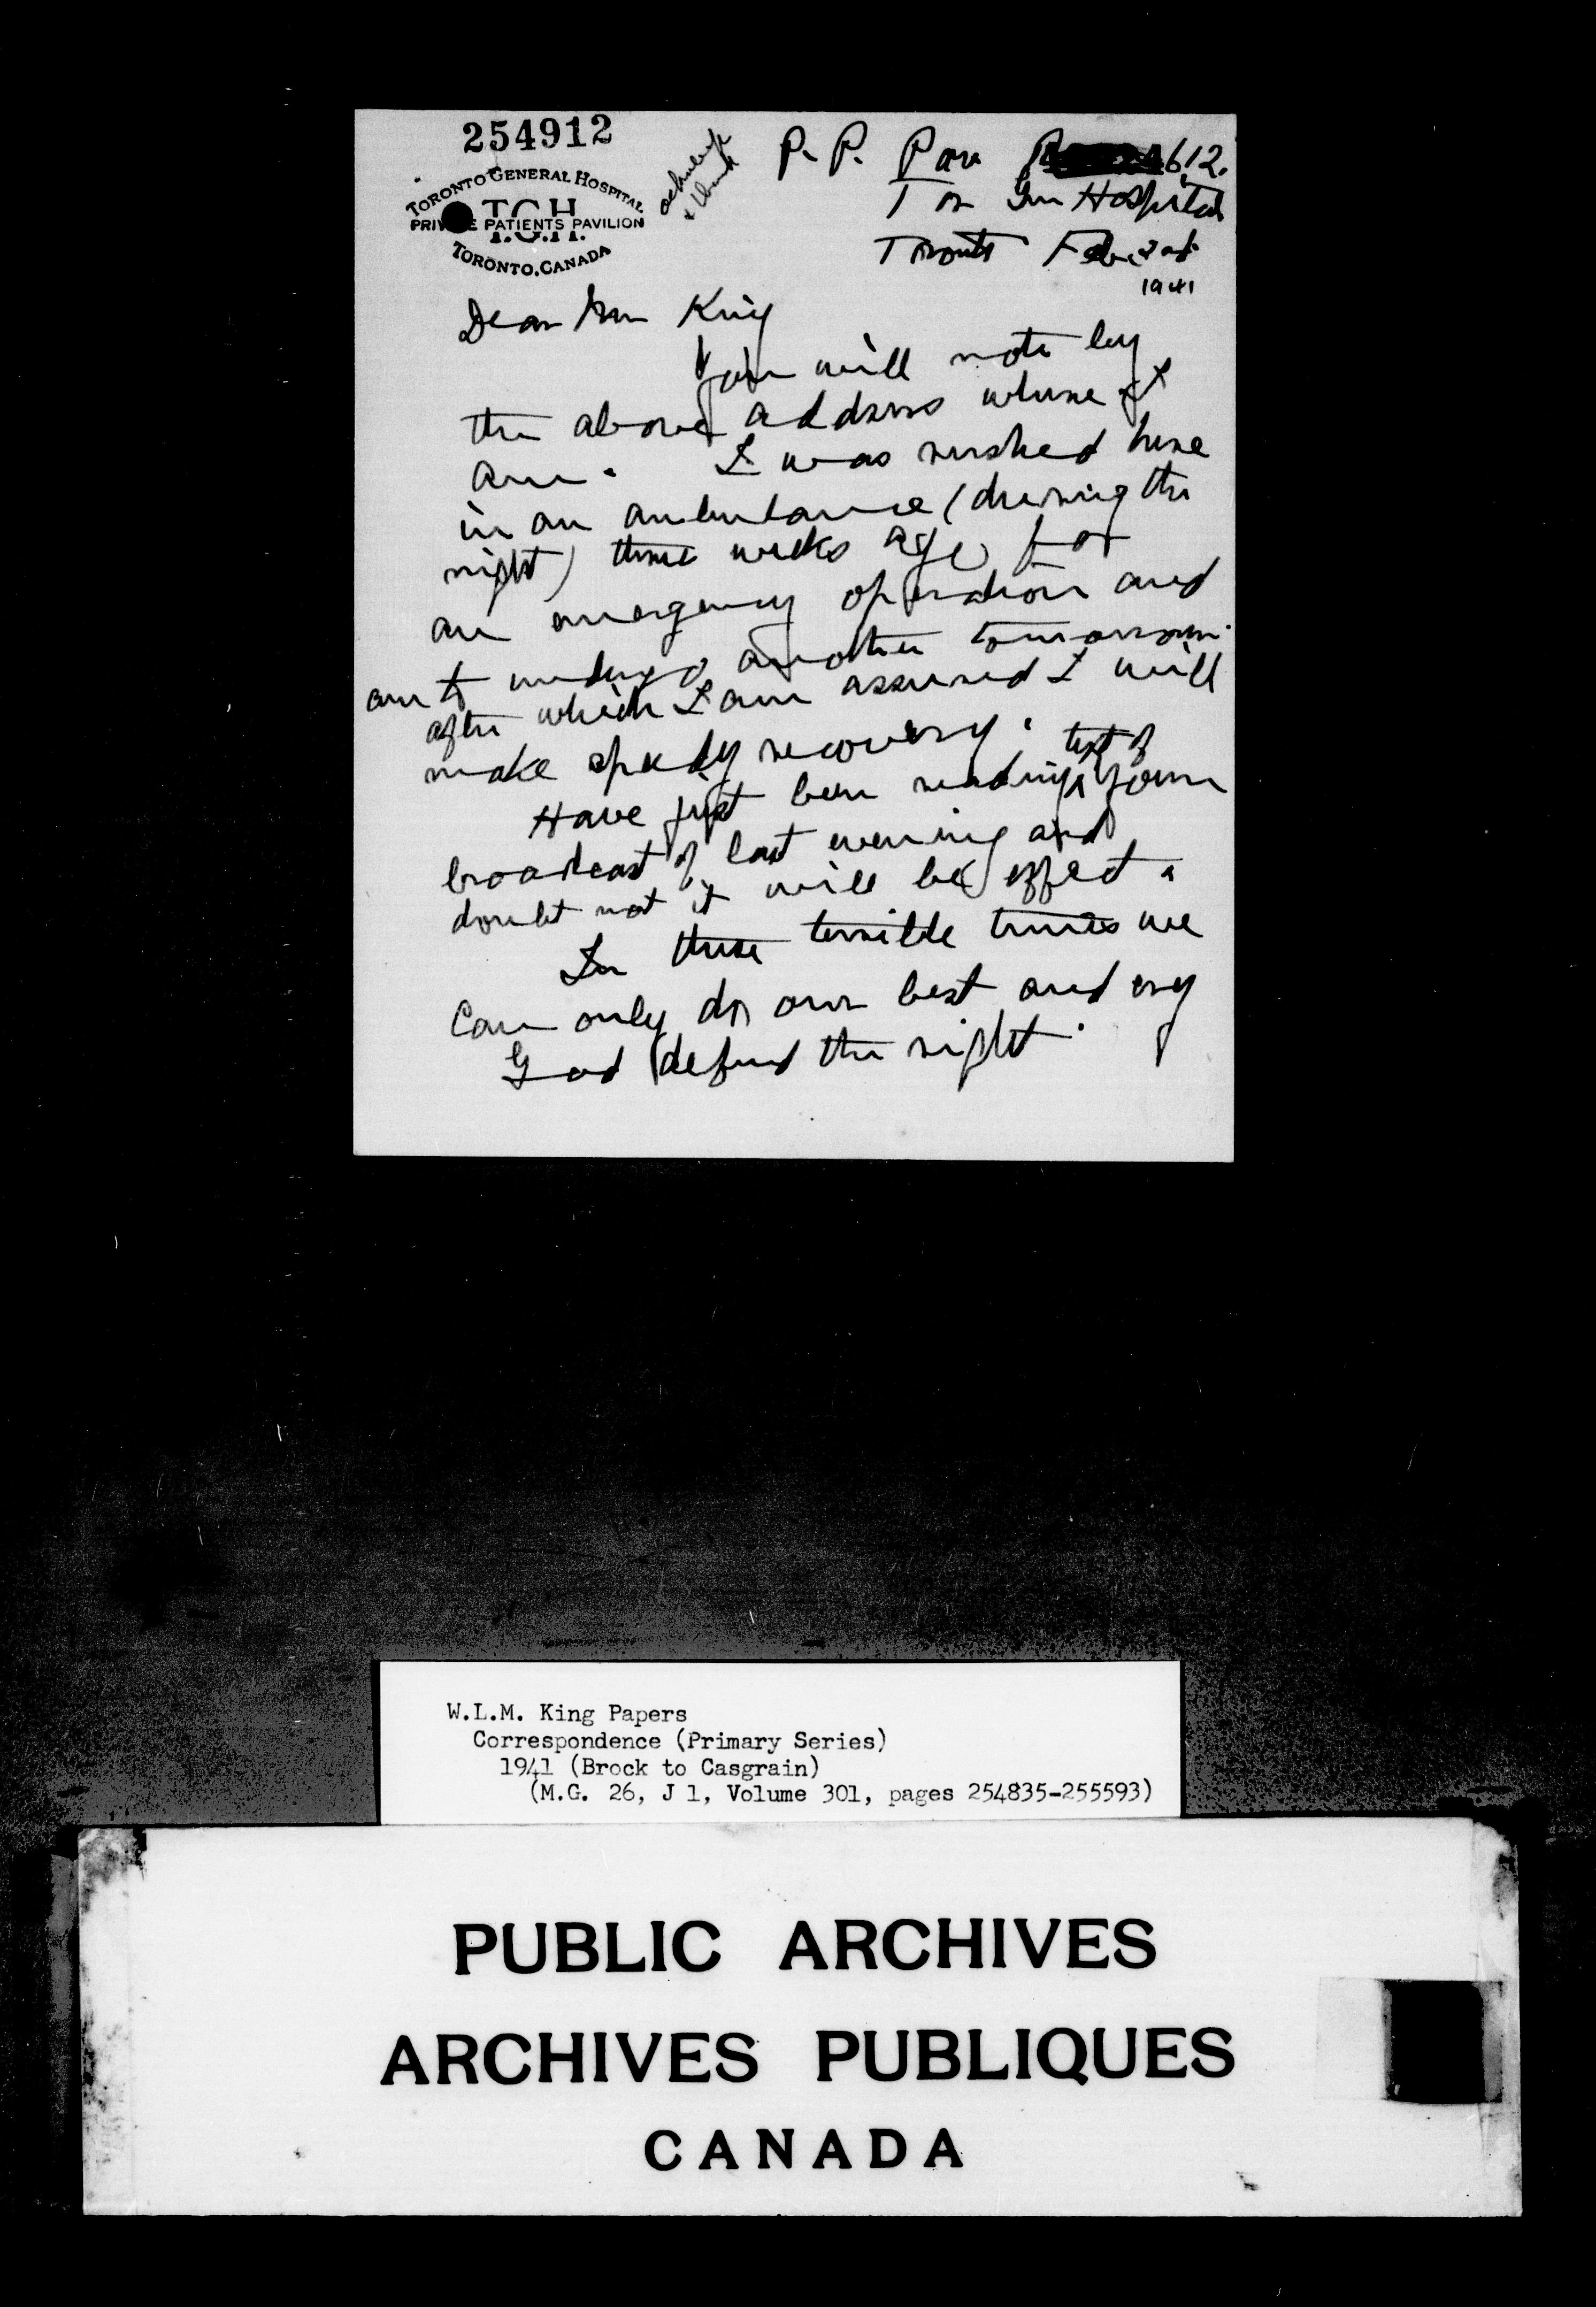 254912
TORONTO GENERAL HOSPITAL
T.G.H.
PRIVATE PATIENTS PAVILION
TORONTO. CANADA
acknowledge
& thank
P. P. Pav 612.
Tor Gen Hospital
Toronto Feb. 2nd
1941
Dear Mr King
You will note by
the above address where I
am. I was rushed here
in an ambulance (during the
night) three weeks ago for
an emergency operation and
am to undergo another tomorrow.
after which I am assured I will
make speedy recovery.
Have just been reading text of your
broadcast of last evening and
doubt not it will be effect
In these terrible times we
can only do our best and
God defend the right.
W.L.M. King Papers
Correspondence (Primary Series)
1941 (Brock to Casgrain)
(M.G. 26, J 1, Volume 301, pages 254835-255593)
PUBLIC ARCHIVES
ARCHIVES PUBLIQUES
CANADA